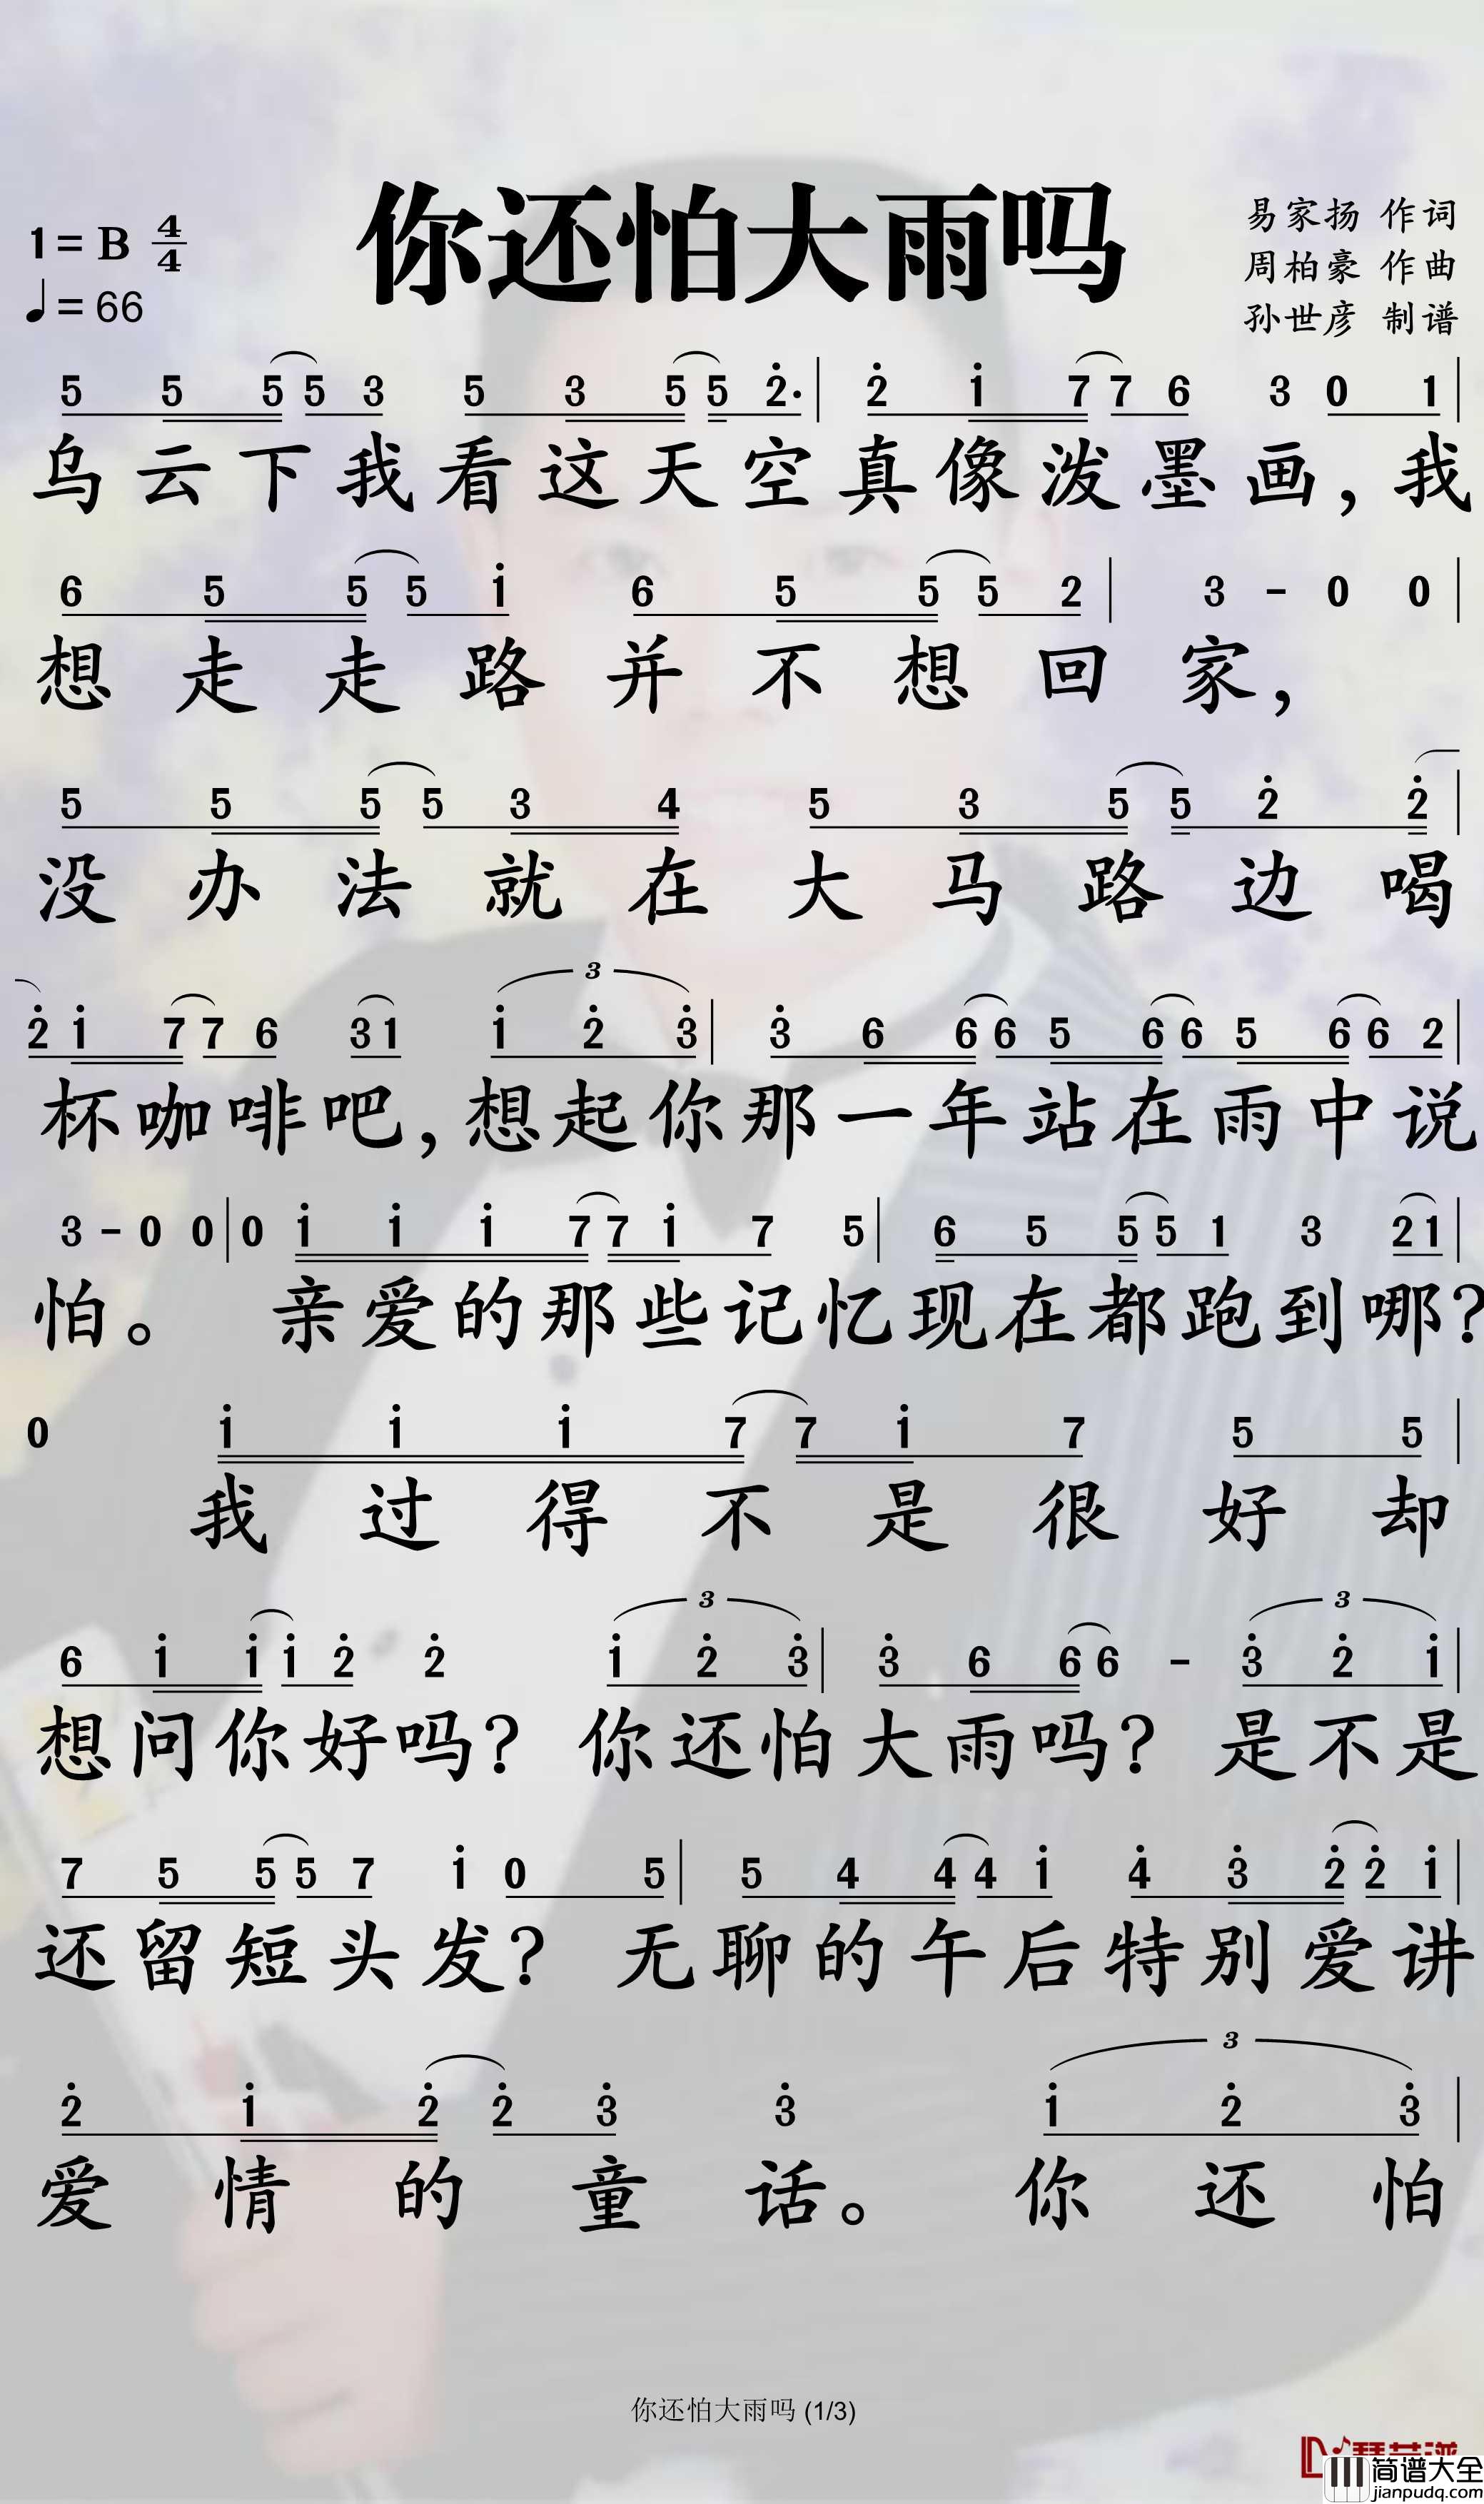 你还怕大雨吗
1=B 4/4
♩=66
易家扬 作词
周柏豪 作曲
孙世彦 制谱
5 5 5 5 3 5 3 5 5 2̇· | 2̇ 1̇ 7 7 6 3 0 1 |
乌云下我看这天空真像泼墨画，我
6 5 5 5 1̇ 6 5 5 5 2 | 3 - 0 0 |
想走走路并不想回家，
5 5 5 5 3 4 5 3 5 5 2̇ 2̇ |
没办法就在大马路边喝
2̇ 1̇ 7 7 6 3 1 3 1̇ 2̇ 3̇ | 3̇ 6 6 6 5 6 6 5 6 6 2 |
杯咖啡吧，想起你那一年站在雨中说
3 - 0 0 | 0 1̇ 1̇ 1̇ 7 7 1̇ 7 5 | 6 5 5 5 1 3 2 1 |
怕。 亲爱的那些记忆现在都跑到哪？
0 1̇ 1̇ 1̇ 7 7 1̇ 7 5 5 |
我过得不是很好却
6 1̇ 1̇ 1̇ 2̇ 2̇ 3 1̇ 2̇ 3̇ | 3̇ 6 6 6 - 3 3̇ 2̇ 1̇ |
想问你好吗？ 你还怕大雨吗？ 是不是
7 5 5 5 7 1̇ 0 5 | 5 4 4 4 1̇ 4̇ 3̇ 2̇ 2̇ 1̇ |
还留短头发？ 无聊的午后特别爱讲
2̇ 1̇ 2̇ 2̇ 3̇ 3̇ 3 1̇ 2̇ 3̇ |
爱情的童话。 你还怕
你还怕大雨吗 (1/3)
简谱大全
jianpudq.com